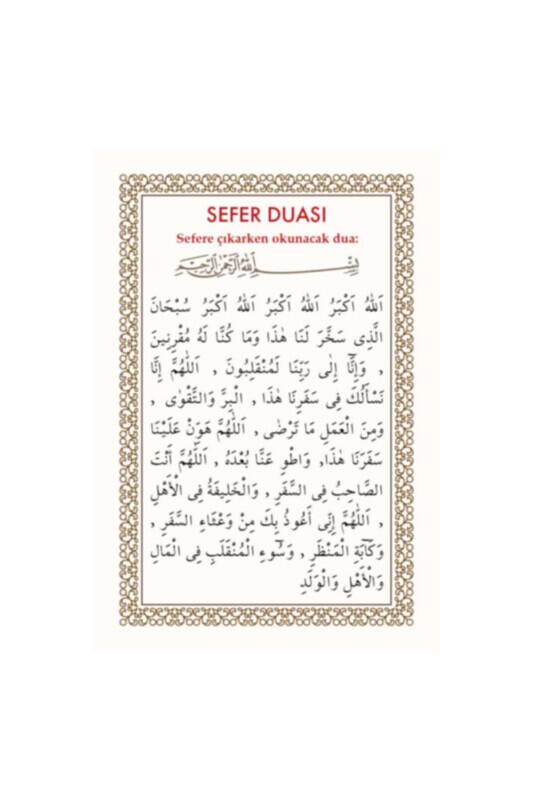 SEFER DUASI
Sefere çıkarken okunacak dua:
بِسْمِ اللهِ الرَّحْمٰنِ الرَّحِيمِ
اَللهُ اَكْبَرُ اَللهُ اَكْبَرُ اَللهُ اَكْبَرُ سُبْحَانَ
الَّذِى سَخَّرَ لَنَا هٰذَا وَمَا كُنَّا لَهُ مُقْرِنِينَ
, وَإِنَّا إِلٰى رَبِّنَا لَمُنْقَلِبُونَ , اَللّٰهُمَّ إِنَّا
نَسْأَلُكَ فِى سَفَرِنَا هٰذَا , الْبِرَّ وَالتَّقْوٰى ,
وَمِنَ الْعَمَلِ مَا تَرْضٰى , اَللّٰهُمَّ هَوِّنْ عَلَيْنَا
سَفَرَنَا هٰذَا, وَاطْوِ عَنَّا بُعْدَهُ , اَللّٰهُمَّ أَنْتَ
الصَّاحِبُ فِى السَّفَرِ , وَالْخَلِيفَةُ فِى الْأَهْلِ
, اَللّٰهُمَّ إِنِّى أَعُوذُ بِكَ مِنْ وَعْثَاءِ السَّفَرِ ,
وَكَآبَةِ الْمَنْظَرِ , وَسُوءِ الْمُنْقَلَبِ فِى الْمَالِ
وَالْأَهْلِ وَالْوَلَدِ